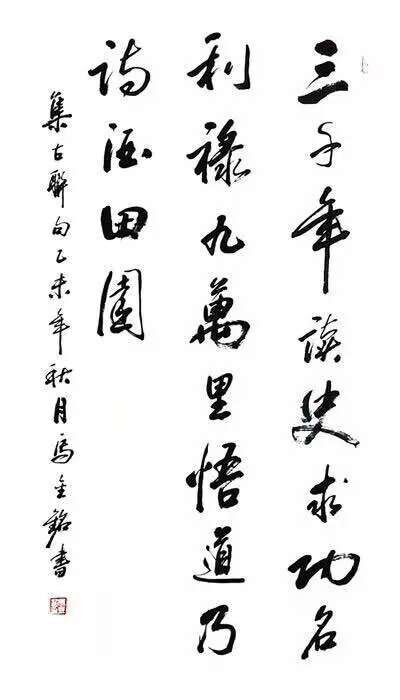 三千年读史求功名
利禄九萬里悟道乃
诗酒田園
集古聯句乙未年秋月馬金銘書